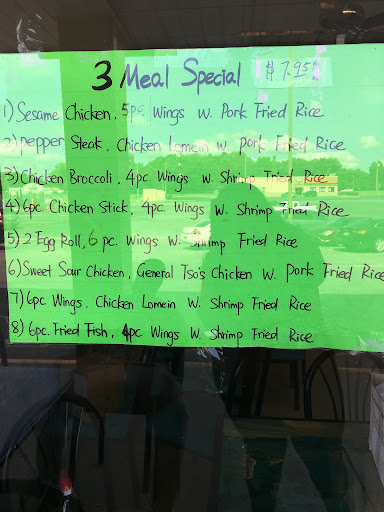 3 Meal Special $7.95
1) Sesame Chicken, 5pc Wings W. Pork Fried Rice
2) Pepper Steak, Chicken Lomein W. Pork Fried Rice
3) Chicken Broccoli, 4pc. Wings W. Shrimp Fried Rice
4) 6pc. Chicken Stick, 4pc. Wings W. Shrimp Fried Rice
5) 2 Egg Roll, 6 pc. Wings W. Shrimp Fried Rice
6) Sweet Sour Chicken, General Tso's Chicken W. Pork Fried Rice
7) 6pc Wings, Chicken Lomein W. Shrimp Fried Rice
8) 6pc. Fried Fish, 4pc Wings W. Shrimp Fried Rice